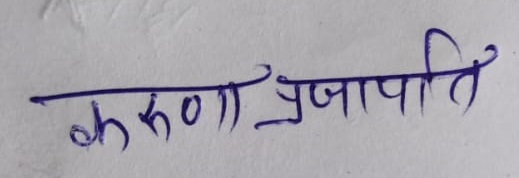 करुणा प्रजापति